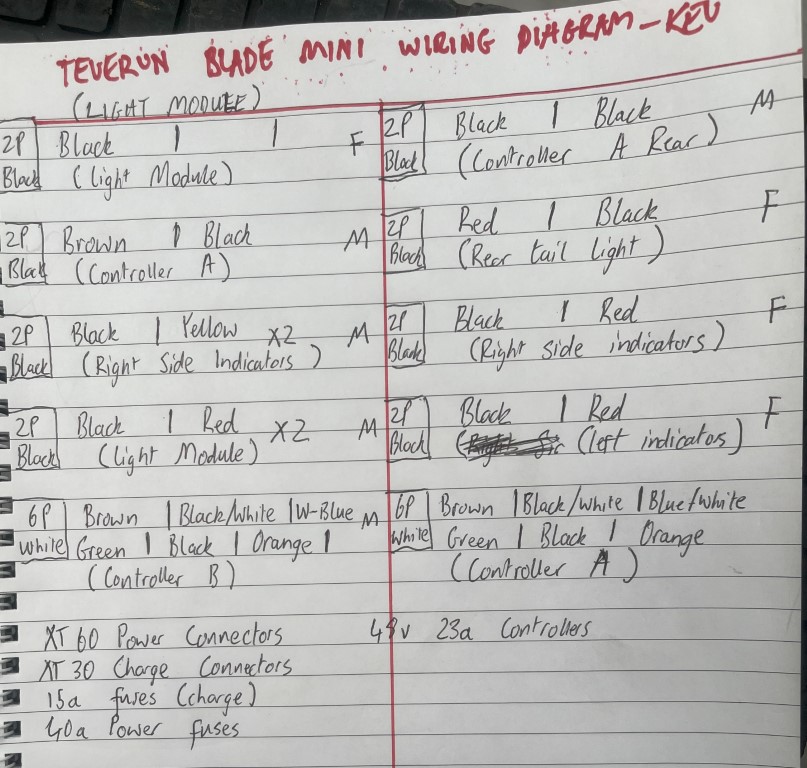 TEVERUN BLADE MINI WIRING DIAGRAM - KEV
(LIGHT MODULE)
2P Black | | F
Black (Light Module)
2P Brown | Black M
Black (Controller A)
2P Black | Yellow x2 M
Black (Right Side Indicators)
2P Black | Red x2 M
Black (Light Module)
6P Brown | Black/White | W-Blue M
White Green | Black | Orange |
(Controller B)
2P Black | Black M
Black (Controller A Rear)
2P Red | Black F
Black (Rear tail light)
2P Black | Red F
Black (Right side indicators)
2P Black | Red F
Black (left indicators)
6P Brown | Black/white | Blue/white
White Green | Black | Orange
(Controller A)
XT 60 Power Connectors
XT 30 Charge Connectors
15a fuses (charge)
40a Power fuses
48v 23a Controllers